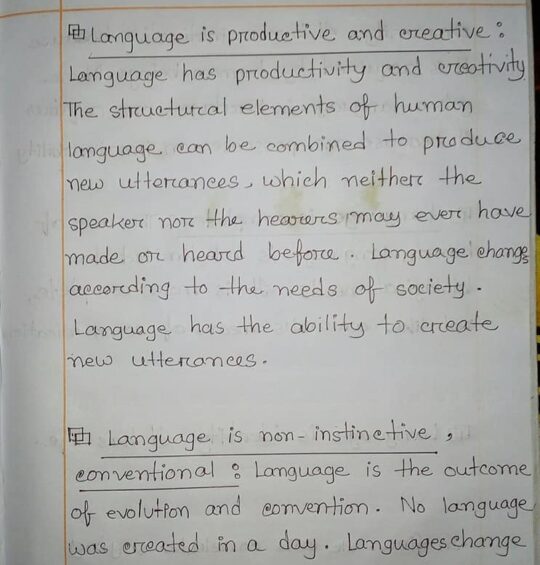 Language is productive and creative :
Language has productivity and creativity
The structural elements of human
language can be combined to produce
new utterances, which neither the
speaker nor the hearers may ever have
made or heard before. Language change
according to the needs of society.
Language has the ability to create
new utterances.
Language is non-instinctive,
conventional : Language is the outcome
of evolution and convention. No language
was created in a day. Languages change